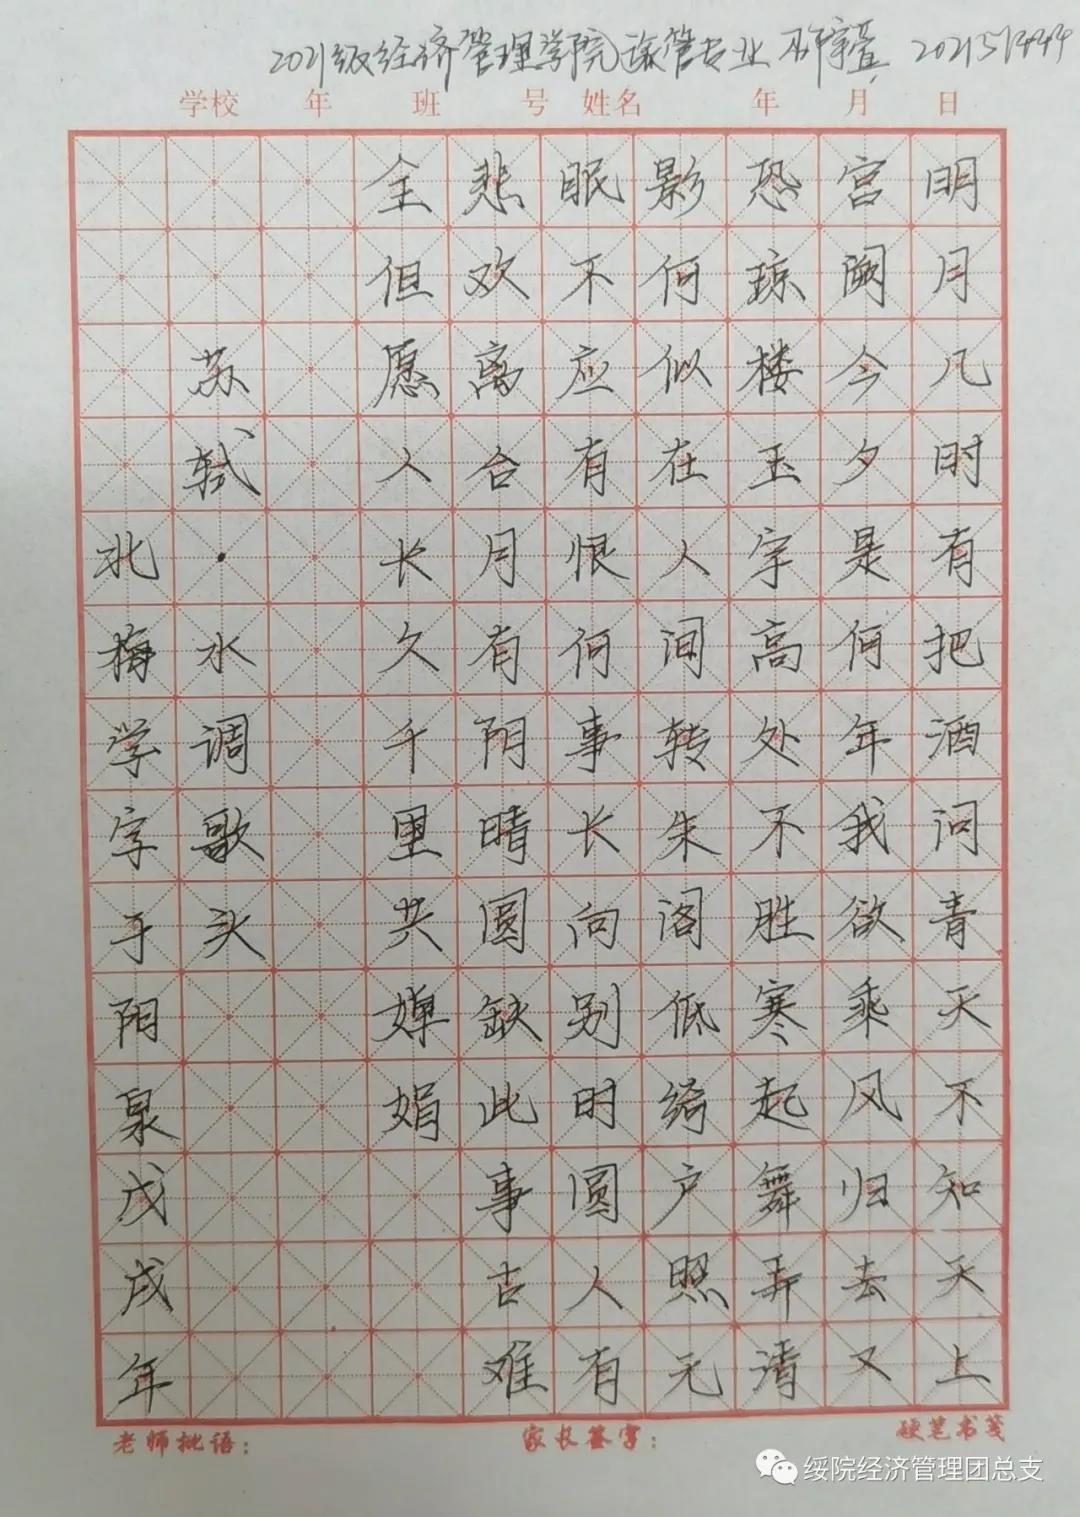 2021级经济管理学院 管专业
学校 年 班 号 姓名 年 月 日
明月几时有把酒问青天不知天上
宫阙今夕是何年我欲乘风归去又
恐琼楼玉宇高处不胜寒起舞弄清
影何似在人间转朱阁低绮户照无
眠不应有恨何事长向别时圆人有
悲欢离合月有阴晴圆缺此事古难
全但愿人长久千里共婵娟
苏轼·水调歌头
北梅学字于阳泉戊戌年
老师批语： 家长签字： 硬笔书笺
绥院经济管理团总支